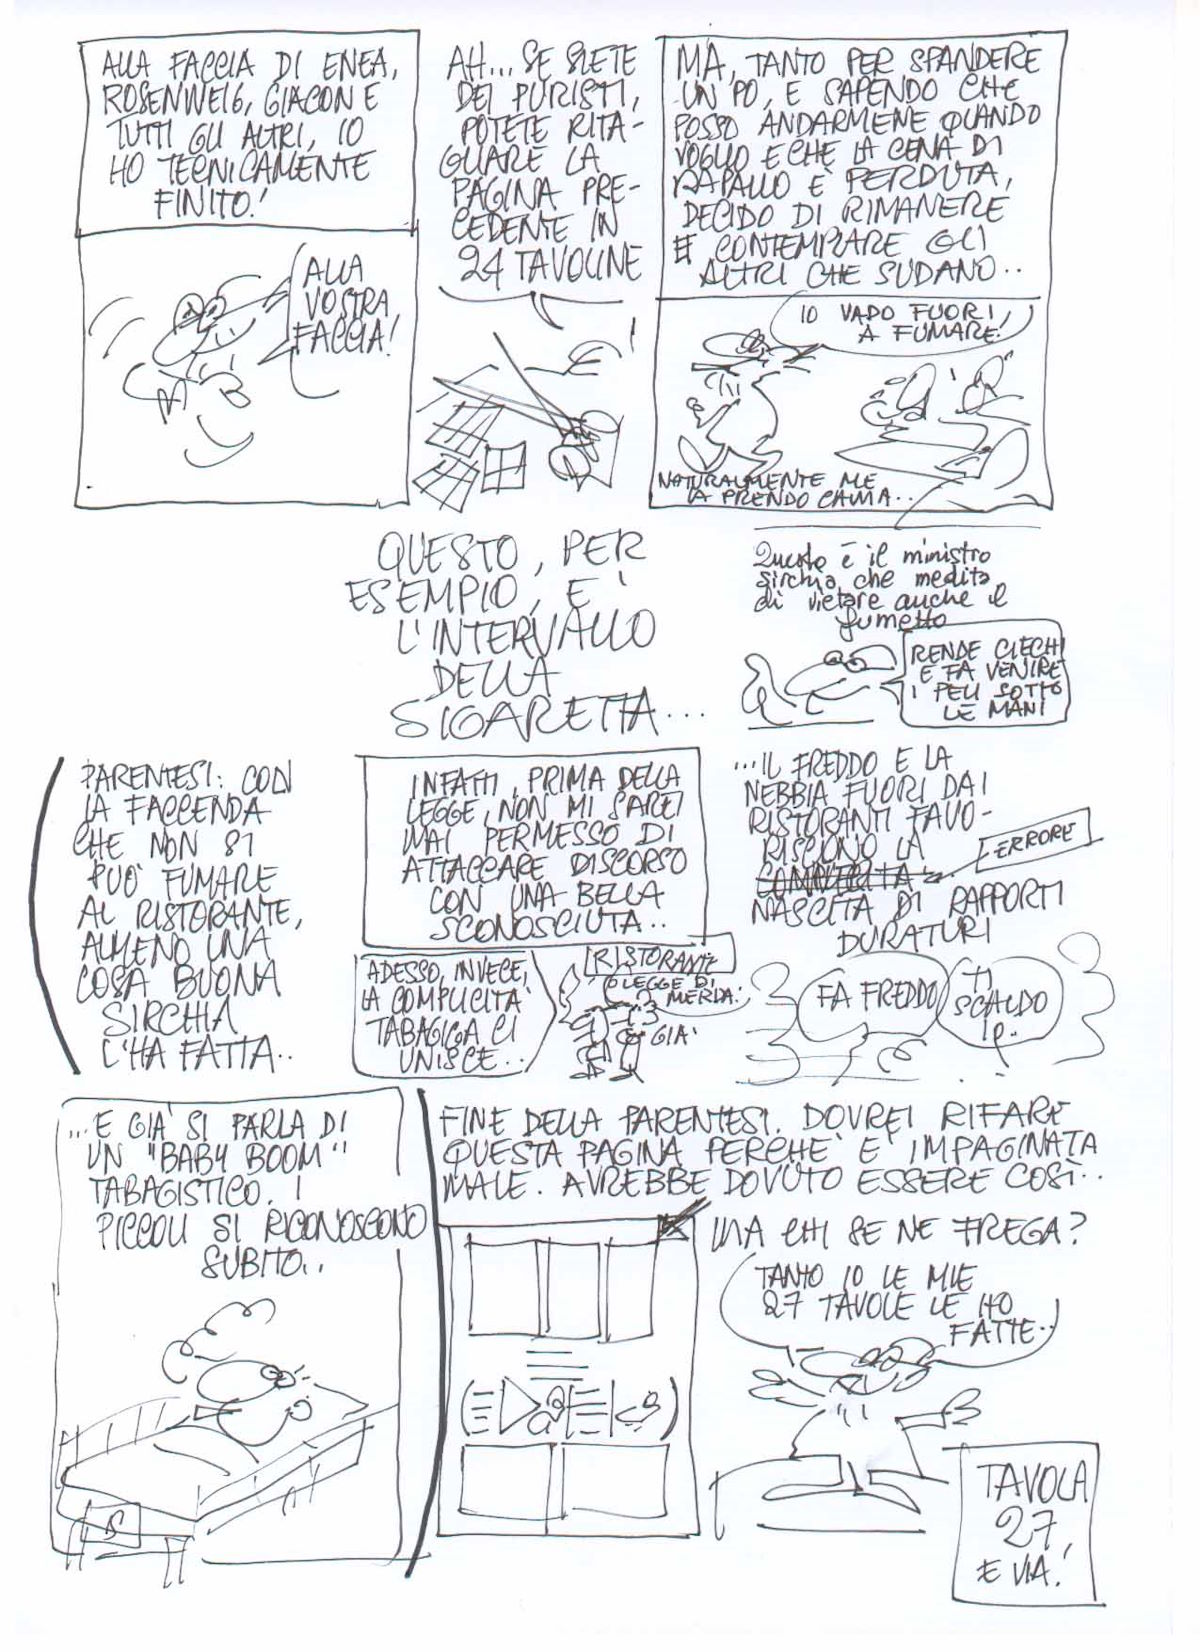 ALLA FACCIA DI ENEA,
ROSENWEIG, GIACON E
TUTTI GLI ALTRI, IO
HO TECNICAMENTE
FINITO!
ALLA
VOSTRA
FACCIA!
AH... SE SIETE
DEI PURISTI,
POTETE RITA-
GLIARE LA
PAGINA PRE-
CEDENTE IN
24 TAVOLINE
MA, TANTO PER SPANDERE
UN PO, E SAPENDO CHE
POSSO ANDARMENE QUANDO
VOGLIO E CHE LA CENA DI
RAPALLO È PERDUTA,
DECIDO DI RIMANERE
E CONTEMPLARE GLI
ALTRI CHE SUDANO..
IO VADO FUORI
A FUMARE.
NATURALMENTE ME
LA PRENDO CALMA..
QUESTO, PER
ESEMPIO, E'
L'INTERVALLO
DELLA
SIGARETTA...
Questo è il ministro
Sirchia che medita
di vietare anche il
fumetto
RENDE CIECHI
E FA VENIRE
I PELI SOTTO
LE MANI
PARENTESI: CON
LA FACCENDA
CHE NON SI
PUO' FUMARE
AL RISTORANTE,
ALMENO UNA
COSA BUONA
SIRCHIA
L'HA FATTA..
INFATTI, PRIMA DELLA
LEGGE, NON MI SAREI
MAI PERMESSO DI
ATTACCARE DISCORSO
CON UNA BELLA
SCONOSCIUTA..
ADESSO, INVECE,
LA COMPLICITA'
TABAGICA CI
UNISCE..
RISTORANTE
LEGGE DI
MERDA!
GIA'
...IL FREDDO E LA
NEBBIA FUORI DAI
RISTORANTI FAVO-
RISCONO LA
COMPLICITA
ERRORE
NASCITA DI RAPPORTI
DURATURI
FA FREDDO
TI
SCALDO
IO..
...E GIA' SI PARLA DI
UN "BABY BOOM"
TABAGISTICO. I
PICCOLI SI RICONOSCONO
SUBITO..
FINE DELLA PARENTESI. DOVREI RIFARE
QUESTA PAGINA PERCHE' E' IMPAGINATA
MALE. AVREBBE DOVUTO ESSERE COSÌ..
MA CHI SE NE FREGA?
TANTO IO LE MIE
27 TAVOLE LE HO
FATTE..
TAVOLA
27,
E VIA!